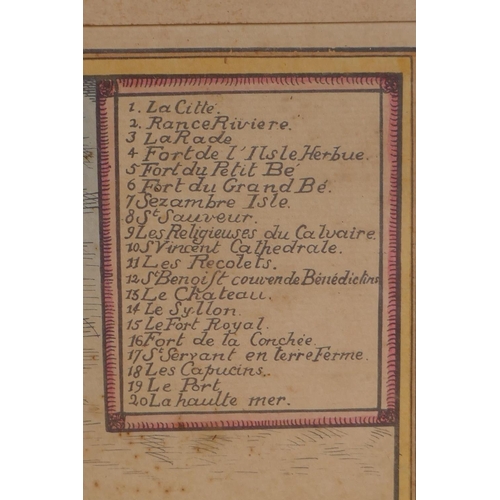 1. La Citte.
2. Rance Riviere.
3 La Rade
4 Fort de l'Ilsle Herbue.
5 Fort du Petit Bé
6 Fort du Grand Bé.
7 Sezambre Isle.
8 St Sauveur.
9 Les Religieuses du Calvaire.
10 St Vincent Cathedrale.
11 Les Recolets.
12 St Benoist couven de Bénédictins
13 Le Chateau.
14 Le Syllon.
15 Le Fort Royal.
16 Fort de la Conchée.
17 St Servant en terre Ferme.
18 Les Capucins.
19 Le Port
20 La haulte mer.